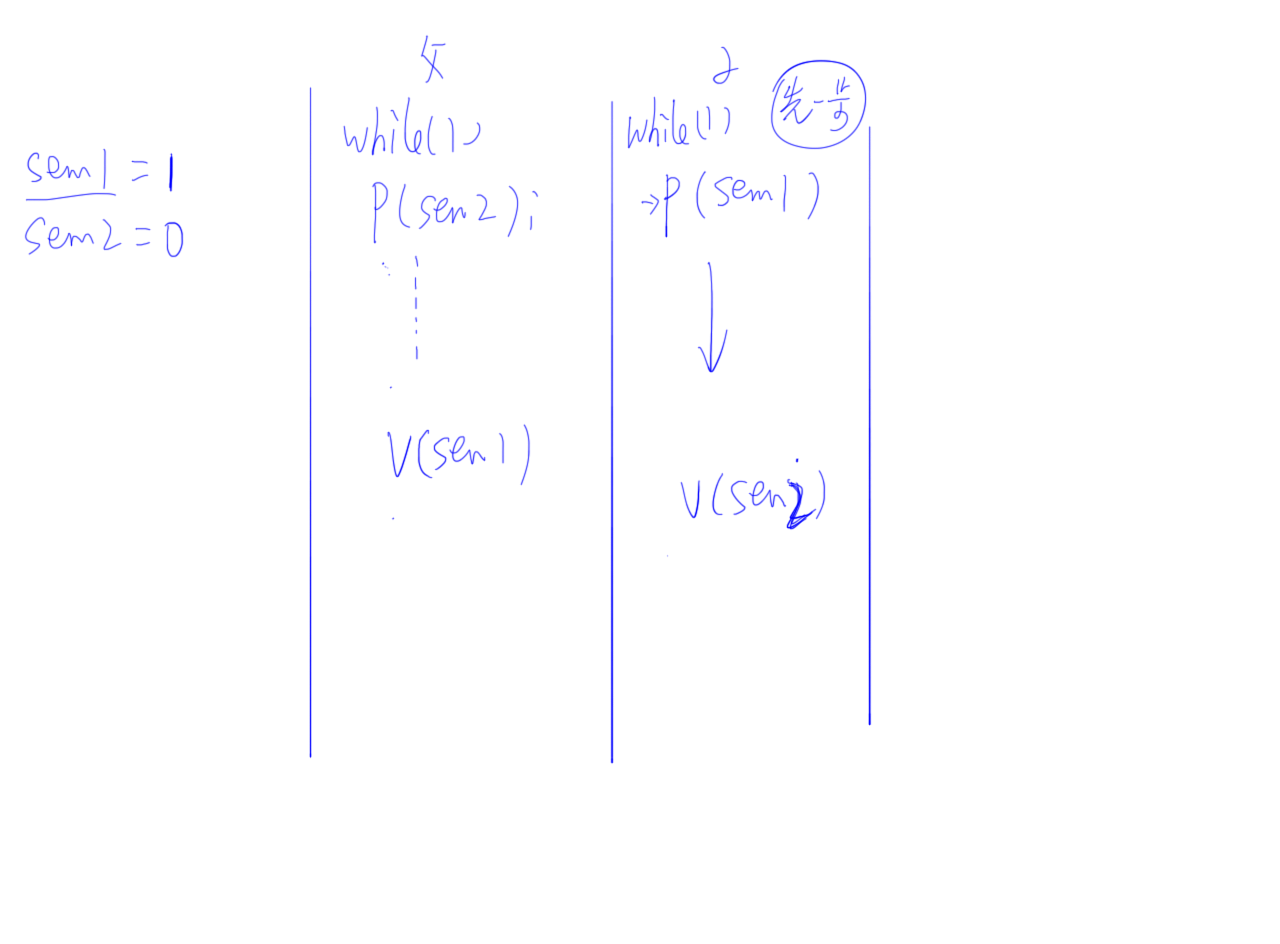 sem1 = 1
sem2 = 0
父
while(1)
P(sem2);
V(sem1)
子
while(1)
先一步
→P(sem1)
V(sem2)